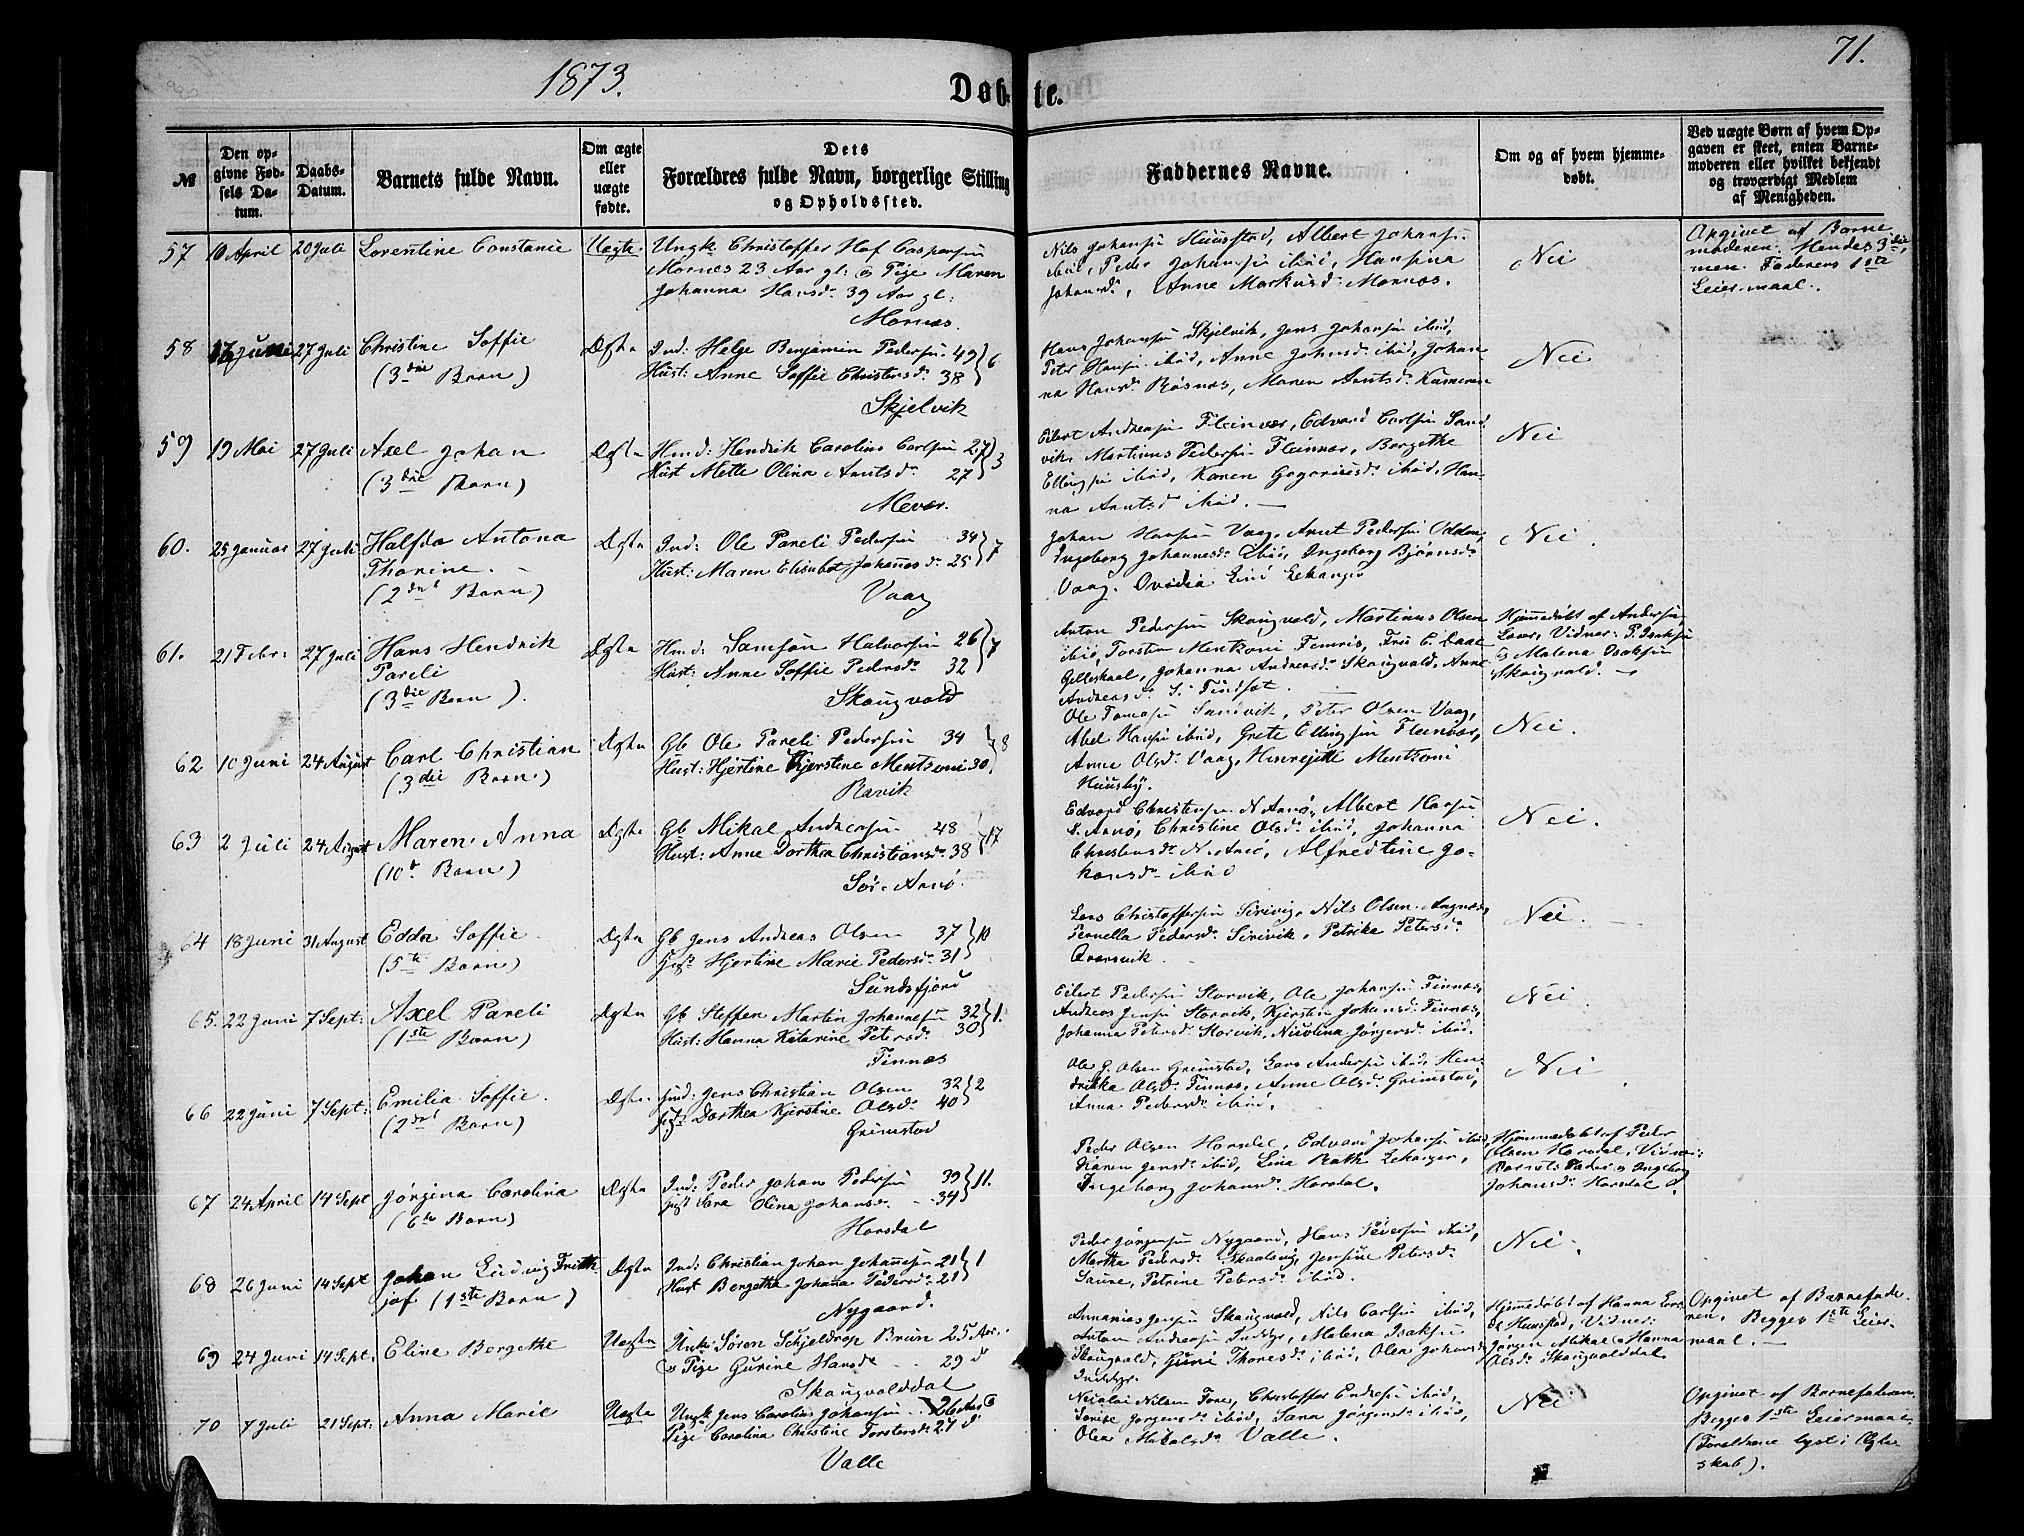 1873.
Døbte.
71.
№
Den opgivne Fødsels Datum.
Daabs-Datum.
Barnets fulde Navn.
Om ægte eller uægte fødte.
Dets Forældres fulde Navn, borgerlige Stilling og Opholdssted.
Faddernes Navne.
Om og af hvem hjemmedøbt.
Ved uægte Børn af hvem Opgaven er skeet, enten Barnemoderen eller hvilket bekjendt og troværdigt Medlem af Menigheden.
57 10 April 20 Juli Lorentine Constanse Uægte
Ungk Christoffer Hof Caspersen
Mornæs 23 Aar gl: og Pige Maren
Johanna Hansd. 39 Aar gl:
Mornæs.
Nils Johansen Skuusstad, Albert Johansen
ibid, Peder Johansen ibid, Hansina
Johansd., Anne Markusd. Mornæs.
Nei
Opgivet af Barne
moderen. Hendes 3die,
men Faderens 1ste
Leiermaal.
58 Juni 27 Juli Christine Soffie Ægte
(3die Barn)
Ind: Helge Benjamin Pedersen 49 } 6
Hust: Anne Soffie Christensd. 38
Skjelvik
Hans Johansen Skjelvik, Jens Johansen ibid,
Peter Hansen ibid, Anne Johnsd. ibid, Johan
na Hansd. Røsnæs, Maren Arntsd.
Nei
59 19 Mai 27 Juli Axel Johan Ægte
(3die Barn)
Hmd: Hendrik Carolius Carlsen 27 } 3
Hust Mette Olina Arntsd. 27
Mevær.
Eilert Andreasen Fleinvær, Edvard Carlsen Sand
vik, Martinus Pedersen Fleinvær, Bergethe
Ellingsen ibid, Karen ibid, Han
na Arntsd ibid.
Nei
60. 25 Januar 27 Juli Halfda Antona Ægte
Thorine.
(2det Barn)
Ind: Ole Pareli Pedersen 34 } 7
Hust: Maren Elisabet Johannesd. 25
Vaag
Johan Hansen Vaag, Arnt Pedersen Odden,
Ingeborg Johannesd. ibid, Ingeborg Bjørnsd.
Vaag.
Nei.
61. 21 Febr: 27 Juli Hans Hendrik Ægte
Pareli
(3die Barn).
Hmd: Samsøn Halvorsen 26 } 7
Hust: Anne Soffie Pedersd. 32
Skaugvold
Anton Pedersen Skaugvold, Martinus Olsen
ibid, Torsten Mentzoni Femris, Fru C. Daae
Gilleskaal, Johanna Andreasd. Skaugvold, Anne
Andreasd. S. Findset.
Hjemmedøbt af Andersen,
Vidner: P. Isaksen
og Malena Isaksen
Skaugvold.
62 10 Juni 24 August Carl Christian Ægte
(3die Barn)
Gb Ole Pareli Pedersen 34 } 8
Hust: Hjertine Kjerstine Mentsoni 30
Ravik
Ole Tomasen Sandvik, Peter Olsen Vaag,
Abel Hansen ibid, Grete Ellingsen Fleinvær,
Anne Olsd. Vaag, Henrejette Mentzoni
Huusby.
Nei.
63 2 Juli 24 August Maren Anna Ægte
(10d Barn)
Gb Mikal Andersen 48 } 17
Hust: Anne Dorthea Christiansd. 38
Sør-Arnø.
Edvard Christensen N. Arnø, Albert Hansen
S. Arnø, Christine Olsd. ibid, Johanna
Christensd. N. Arnø, Alfredtine Jo-
hansd. ibid
Nei.
64 18 Juni 31 August Edda Soffie Ægte
(5te Barn)
Gb Jens Andreas Olsen 37 } 10
Hust Hjertine Marie Pedersd. 31
Sundsfjord
Lars Christoffersen Sirivig, Nils Olsen Angnæs,
Pernella Pedersd. Sirivik, Petrika Petersd.
Kvarsvik
Nei.
65. 22 Juni 7 Sept: Axel Pareli Ægte
(1ste Barn)
Gb Steffen Martin Johannesen 32 } 1.
Hust: Hanna Katarine Petersd. 30
Finnæs
Eilert Pedersen Storvik, Ole Johansen Finnæs,
Andreas Jensen Storvik, Kjersten Johansd. Finnæs,
Johanna Petersd. Storvik, Nicolina Jørgensd. ibid.
Nei.
66 22 Juni 7 Sept: Emilia Soffie. Ægte
(2det Barn)
Ind: Jens Christian Olsen 32 } 2
Hust Dorthea Kjerstine Olsd. 40
Grimstad
Ole G. Olsen Grimstad, Lars Andersen ibid, Hen
drikka Olsd. Finnæs, Anne Olsd. Grimstad,
Anna Pedersd. ibid.
Nei
67 24 April 14 Sept Jørgina Carolina Ægte
(6te Barn)
Ind: Peder Johan Pedersen 39 } 11.
Hust Sara Olina Johansd. 34
Horsdal
Peder Olsen Horsdal, Edvard Johansen ibid,
Karen Jensd. ibid, Lina Rath,
Ingeborg Johansd. Horsdal.
Hjemmedøbt af Peder
Olsen Horsdal, Vidner:
Barnets Fader og Ingeborg
Johansd. Horsdal
68 26 Juni 14 Sept Johan Ludvig Frith Ægte
jof (1ste Barn)
Ind: Christian Johan Johannesen 21 } 1
Hust Bergetha Johanna Pedersd. 21
Nygaard.
Peder Jørgensen Nygaard, Hans Pedersen ibid,
Martha Pedersd. Skaalsvig, Jensine Petersd.
Saura, Petrine Petersd. ibid.
Nei.
69 24 Juni 14 Sept. Eline Bergethe Uægte
Ungk Søren Schjeldrop Brun 25 Aar.
og Pige Gurine Hansd. 29 d
Skaugvolddal
Annanias Jensen Skaugvold, Nils Carlsen ibid,
Antun Andersen Inddyr, Malena Isaksen
Skaugvold, Guni Thoresd. ibid, Olea Johansd.
Inddyr.
Hjemmedøbt af Hanna
Vidner:
Jørgen Mikal og Hanna
Olsd. Skaugvolddal
Opgivet af Barnefade-
ren. Begges 1ste Leier-
maal.
70 7 Juli 21 Sept: Anna Marie Uægte
Ungk Jens Carolius Johansen 26 Aar
Pige Carolina Christine Torstensd. 27 d.
Valle
Nicolai Nilsen Fore, Christoffer Endresen ibid,
Jorgensd. ibid, Sara Jørgensd. ibid,
Olea Mikalsd. Valle.
Nei
Opgivet af Barnefaderen.
Begges 1ste Leiermaal.
(Foreldrene lyst i Ægte
skab).